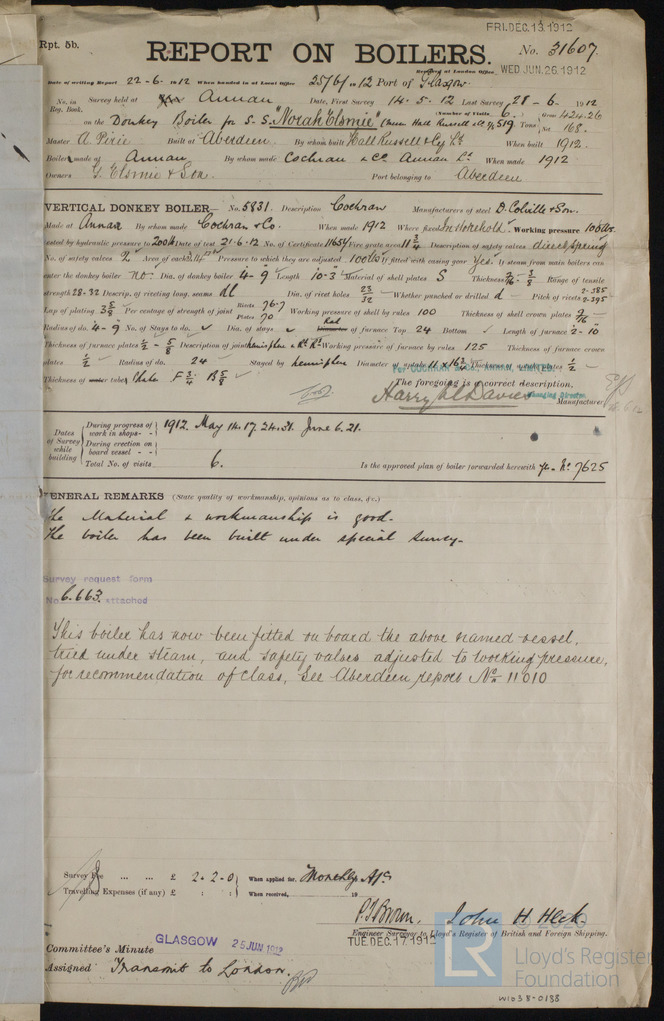 FRI. DEC. 13. 1912
Rpt. 5b.
REPORT ON BOILERS.
No. 31607.
Received at London Office WED JUN. 26 1912
Date of writing Report 22-6-1912 When handed in at Local Office 25/6/1912 Port of Glasgow.
No. in Reg. Book. Survey held at Annan Date, First Survey 14-5-12 Last Survey 28-6-1912
on the Donkey Boiler for S.S. "Norah Elsmie" (Number of Visits 6.) Gross 424.26
Tons Net 168.
Master A Pirie Built at Aberdeen By whom built Hall Russell & Coy Ld When built 1912.
Boiler made at Annan By whom made Cochran & Co. Annan Ld. When made 1912
Owners G. Elsmie & Son. Port belonging to Aberdeen
VERTICAL DONKEY BOILER— No. 5831. Description Cochran Manufacturers of steel D. Colville & Son.
Made at Annan By whom made Cochran & Co. When made 1912 Where fixed In Stokehold. Working pressure 100 lbs.
tested by hydraulic pressure to 200 lb Date of test 21-6-12 No. of Certificate 11654 Fire grate area 11 3/4 Description of safety valves direct spring
No. of safety valves 2 Area of each Pressure to which they are adjusted 100 lbs If fitted with easing gear yes. If steam from main boilers can
enter the donkey boiler no. Dia. of donkey boiler 4-9 Length 10-3 Material of shell plates S Thickness Range of tensile
strength 28-32 Descrip. of riveting long. seams dl Dia. of rivet holes 23/32 Whether punched or drilled d Pitch of rivets
Lap of plating 3 5/8 Per centage of strength of joint Rivets 76.7 Plates 70 Working pressure of shell by rules 100 Thickness of shell crown plates 9/16
Radius of do. 4-9 No. of Stays to do. Dia. of stays furnace Top 24 Bottom Length of furnace 2-10
Thickness of furnace plates 1/2 - 5/8 Description of joint Working pressure of furnace by rules 125 Thickness of furnace crown
plates 1/2 Radius of do. 24 Stayed by hemisphere Diameter of Thickness of plates 1/2
Thickness of tube Plates F 3/4 B 5/8
The foregoing is a correct description,
Harry Davies Managing Director
Manufacturer
Dates of Survey while building
During progress of work in shops - - 1912. May 14. 17. 24. 31. June 6. 21.
During erection on board vessel - -
Total No. of visits 6.
Is the approved plan of boiler forwarded herewith No. 7625
GENERAL REMARKS (State quality of workmanship, opinions as to class, &c.)
The Material & workmanship is good.
The boiler has been built under special survey.
Survey request form
No. 6.663. attached
This boiler has now been fitted on board the above named vessel,
tried under steam, and safety valves adjusted to working pressure,
for recommendation of class, see Aberdeen report No. 11010
Survey Fee ... ... £ 2 . 2 . 0 When applied for, Monthly A/c
Travelling Expenses (if any) £ : : When received, 19
P. T. Brown. John H. Heck.
Engineer Surveyor to Lloyd's Register of British and Foreign Shipping.
TUE. DEC. 17 1912
Committee's Minute GLASGOW 25 JUN 1912
Assigned Transmit to London.
© 2020
LR
Lloyd's Register
Foundation
W1038-0138